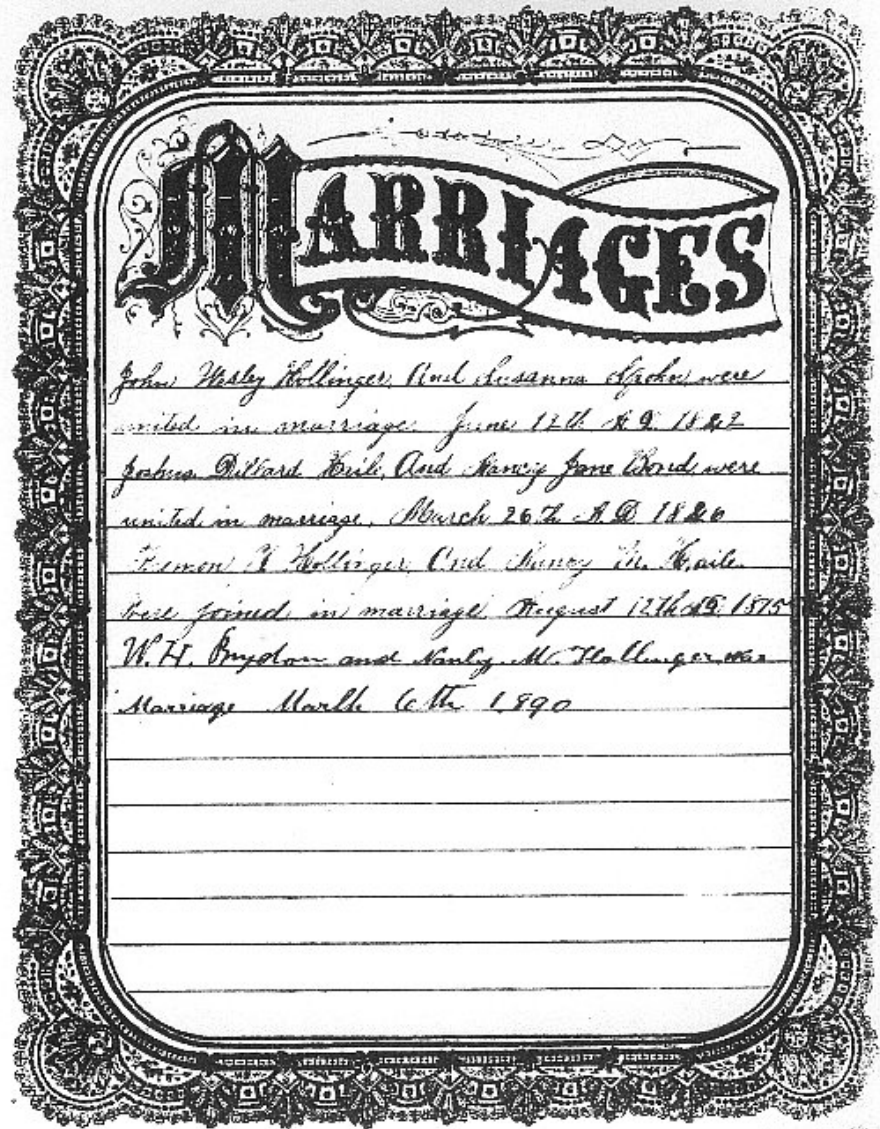 MARRIAGES
John Wesley Hollinger, And Susanna Spohn were
united in marriage June 12th A D. 18
Joshua Dillard Haile, And Nancy Jane Bond were
united in marriage, March 26th A.D. 18
Hollinger, And Nancy M. Haile.
were joined in marriage August 12th AD. 1875
W. H. Brydon and Nancy M. Hollinger was
Marriage March 6th 1890